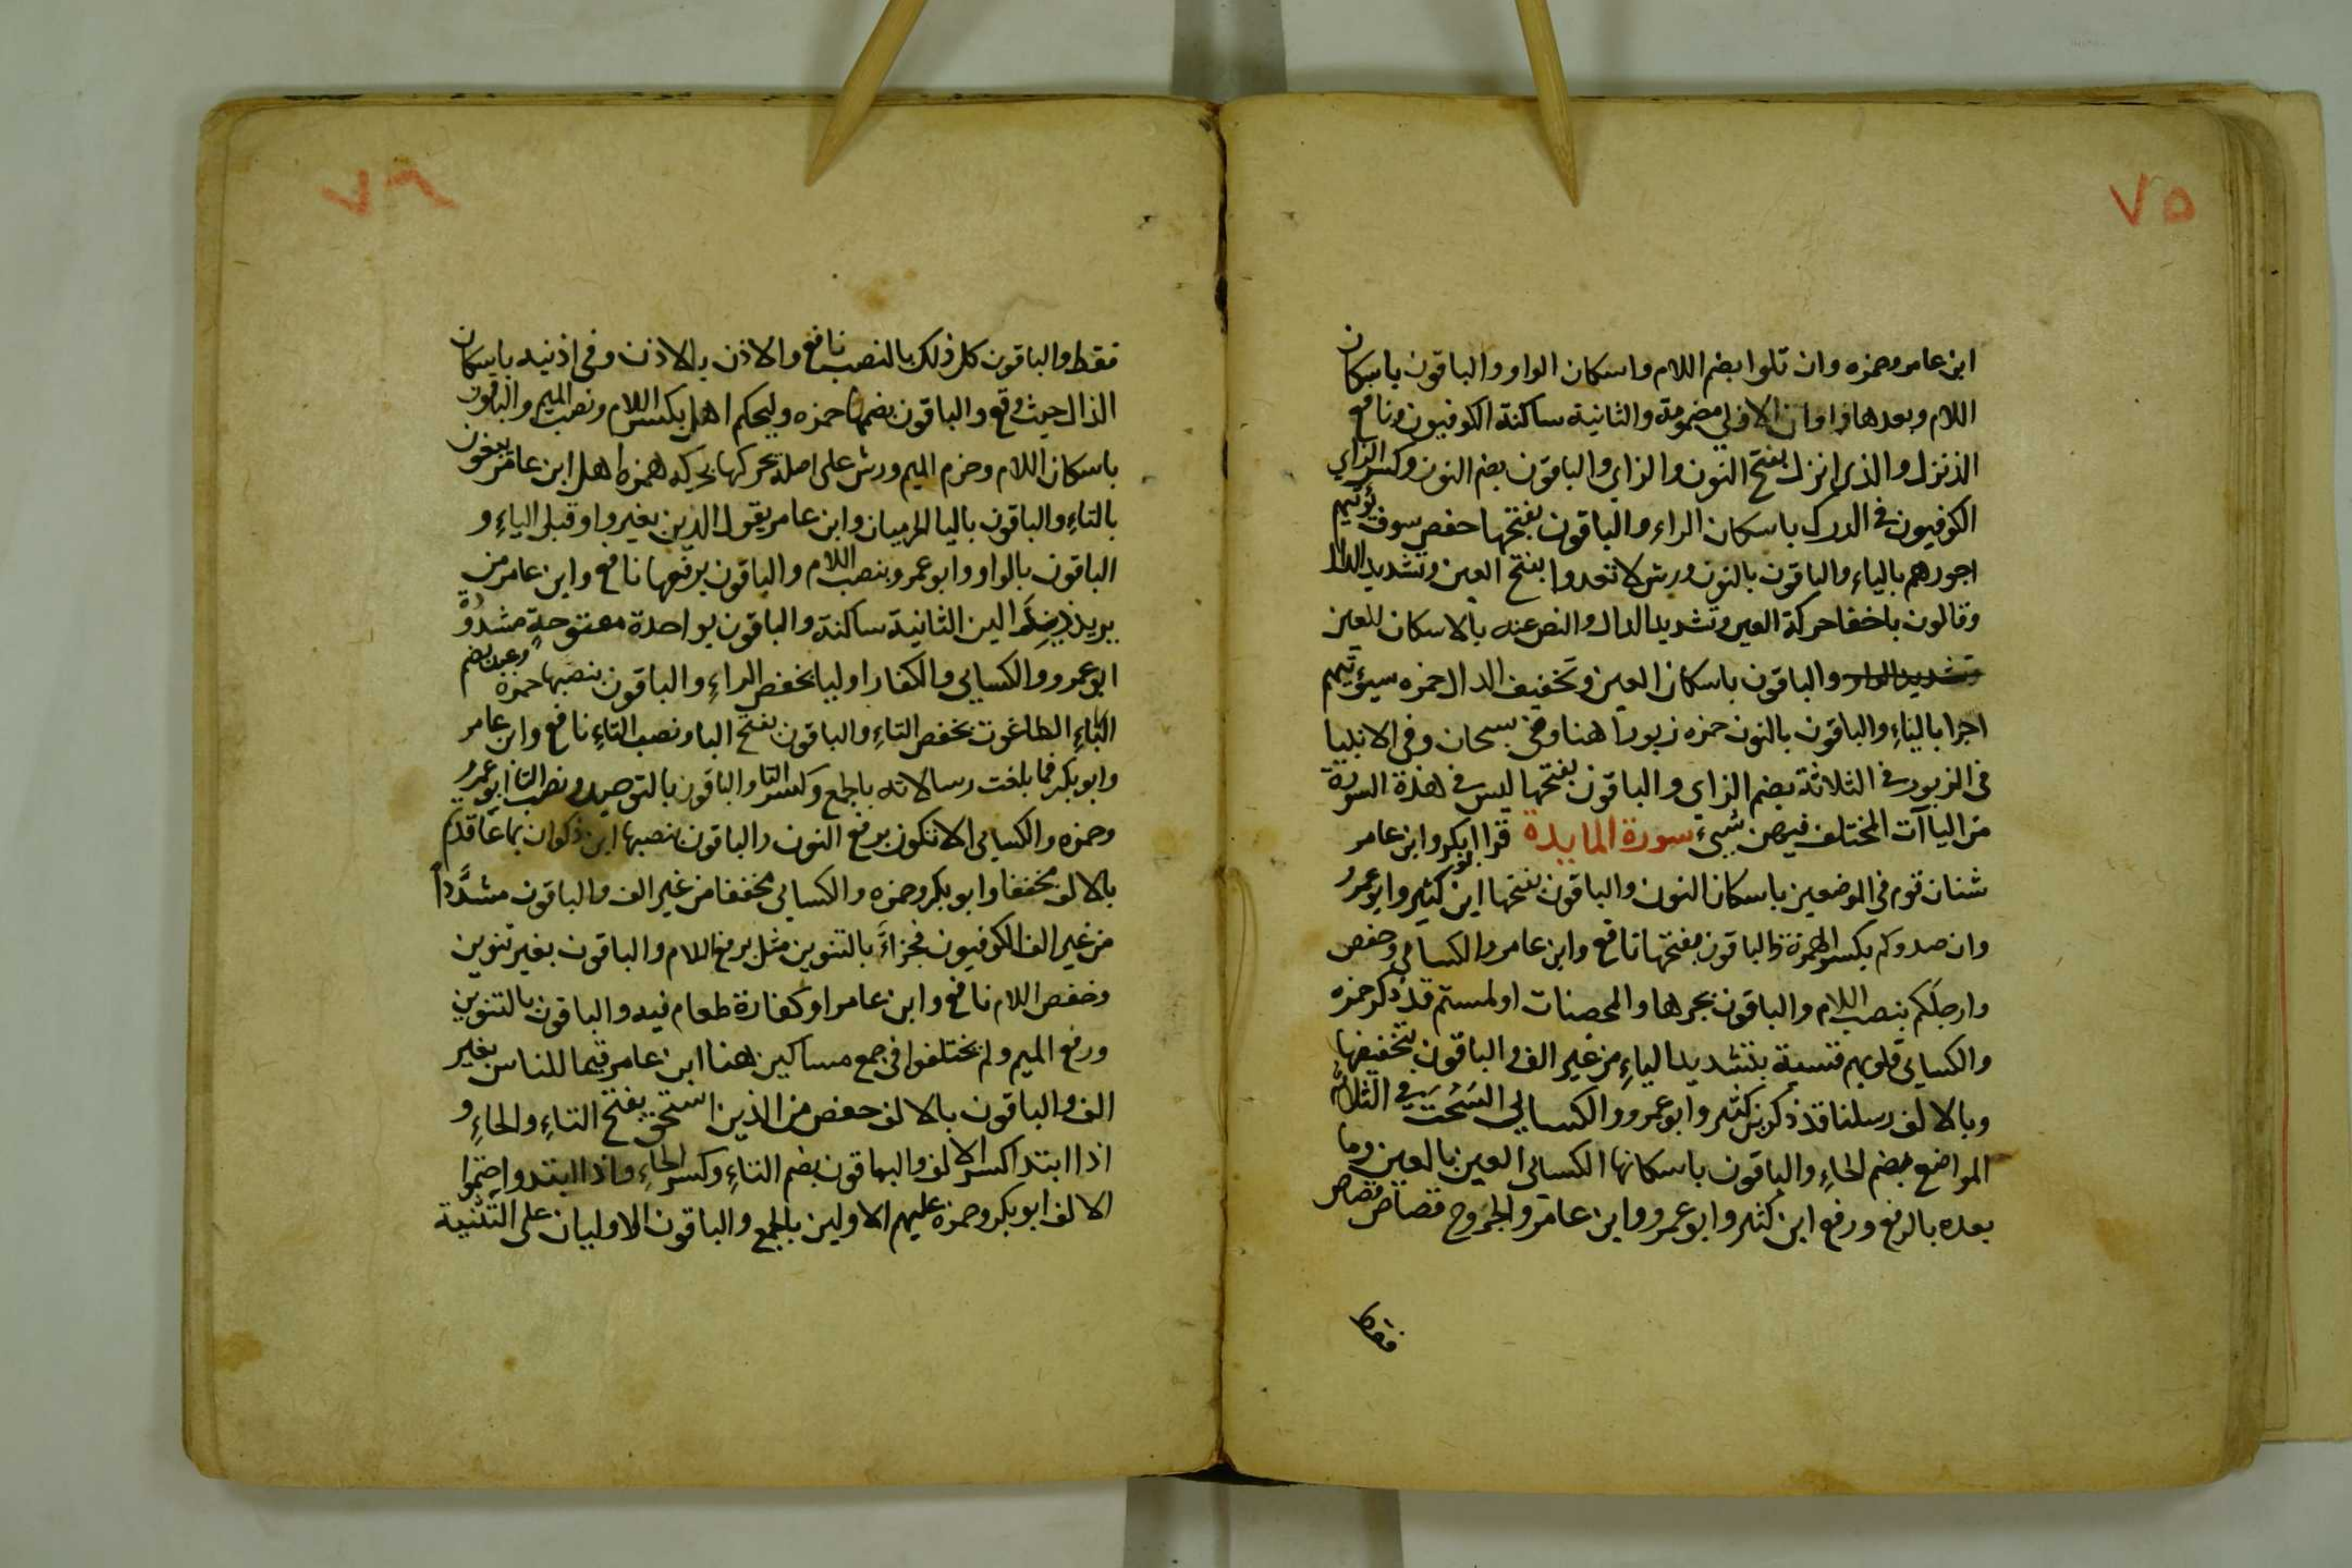 ٧٥
ابن عامر وحمزه وان تلوا بضم اللام واسكان الواو والباقون باسكان
اللام وبعدها واوان الاولي مضمومة والثانية ساكنة الكوفيون ونافع
الذ نزل والذي انزل بفتح النون والزاي والباقون بضم النون وكسر الزاي
الكوفيون في الدرك باسكان الراء والباقون بفتحها حفص سوف يؤتيهم
اجورهم بالياء والباقون بالنون ورش لا تعدوا بفتح العين وتشديد الدال
وقالون باخفا حركة العين وتشديد الدال والنص عنه بالاسكان للعين
والباقون باسكان العين وتخفيف الدال حمزه سيؤتيهم
اجرا بالياء والباقون بالنون حمزه زبورا هنا وفي سبحان وفي الانبيا
في الزبور في الثلاثة بضم الزاي والباقون بفتحها ليس في هذة السورة
من الياآت المختلف فيهن شيء سورة المايدة قرا ابكر وابن عامر
شنان قوم في الموضعين باسكان النون والباقون بفتحها ابن كثير وابو عمرو
وان صدوكم بكسر الهمزة والباقون بفتحها نافع وابن عامر والكسائي وحفص
وارجلكم بنصب اللام والباقون بجرها والمحصنات اولمستم قد ذكر حمزه
والكسائي قلوبهم قسية بتشديد الياء من غير الف والباقون بتخفيفها
وبالالف رسلنا قد ذكر بن كثير وابو عمرو والكسائي السحت في الثلاثة
المواضع بضم الحاء والباقون باسكانها الكسائي العين بالعين وما
بعده بالرفع ورفع ابن كثير وابو عمرو وابن عامر والجروح قصاص قصاص
٧٦
فقط والباقون كل ذلك بالنصب نافع والاذن بالاذن وفي اذنيه باسكان
الذال حيث وقع والباقون بضمها حمزه وليحكم اهل بكسر اللام ونصب الميم والباقون
باسكان اللام وجزم الميم ورش على اصله يحركها بحركه همزه اهل ابن عامر يبغون
بالتاء والباقون باليا الحرميان وابن عامر يقول الذين بغير واو قبل الياء و
الباقون بالواو وابو عمرو بنصب اللام والباقون برفعها نافع وابن عامر من
يرتدد بدالين الثانية ساكنة والباقون بواحدة مفتوحة مشددة
ابو عمرو والكسايي والكفار اوليا بخفض الراء والباقون بنصبها حمزه وعبد بضم
الباء الطاغوت بخفض التاء والباقون بفتح البا ونصب التاء نافع وابن عامر
وابو بكر فما بلغت رسالاته بالجمع وكسر التا والباقون بالتوحيد ونصب التا ابو عمرو
وحمزه والكسائي الا تكون برفع النون والباقون بنصبها ابن ذكوان بما عاقدتم
بالالف مخففا وابو بكر وحمزه والكسائي مخففا من غير الف والباقون مشددا
من غير الف الكوفيون فجزاء بالتنوين مثل برفع اللام والباقون بغير تنوين
وخفض اللام نافع وابن عامر او كفارة طعام فيه والباقون بالتنوين
ورفع الميم ولم يختلفوا في جمع مساكين هنا ابن عامر قيما للناس بغير
الف والباقون بالالف حفص من الذين استحق بفتح التاء والحاء و
اذا ابتدا كسر الالف والباقون بضم التاء وكسر الحاء واذا ابتدوا ضموا
الالف ابو بكر وحمزه عليهم الاولين بالجمع والباقون الاوليان على التثنية